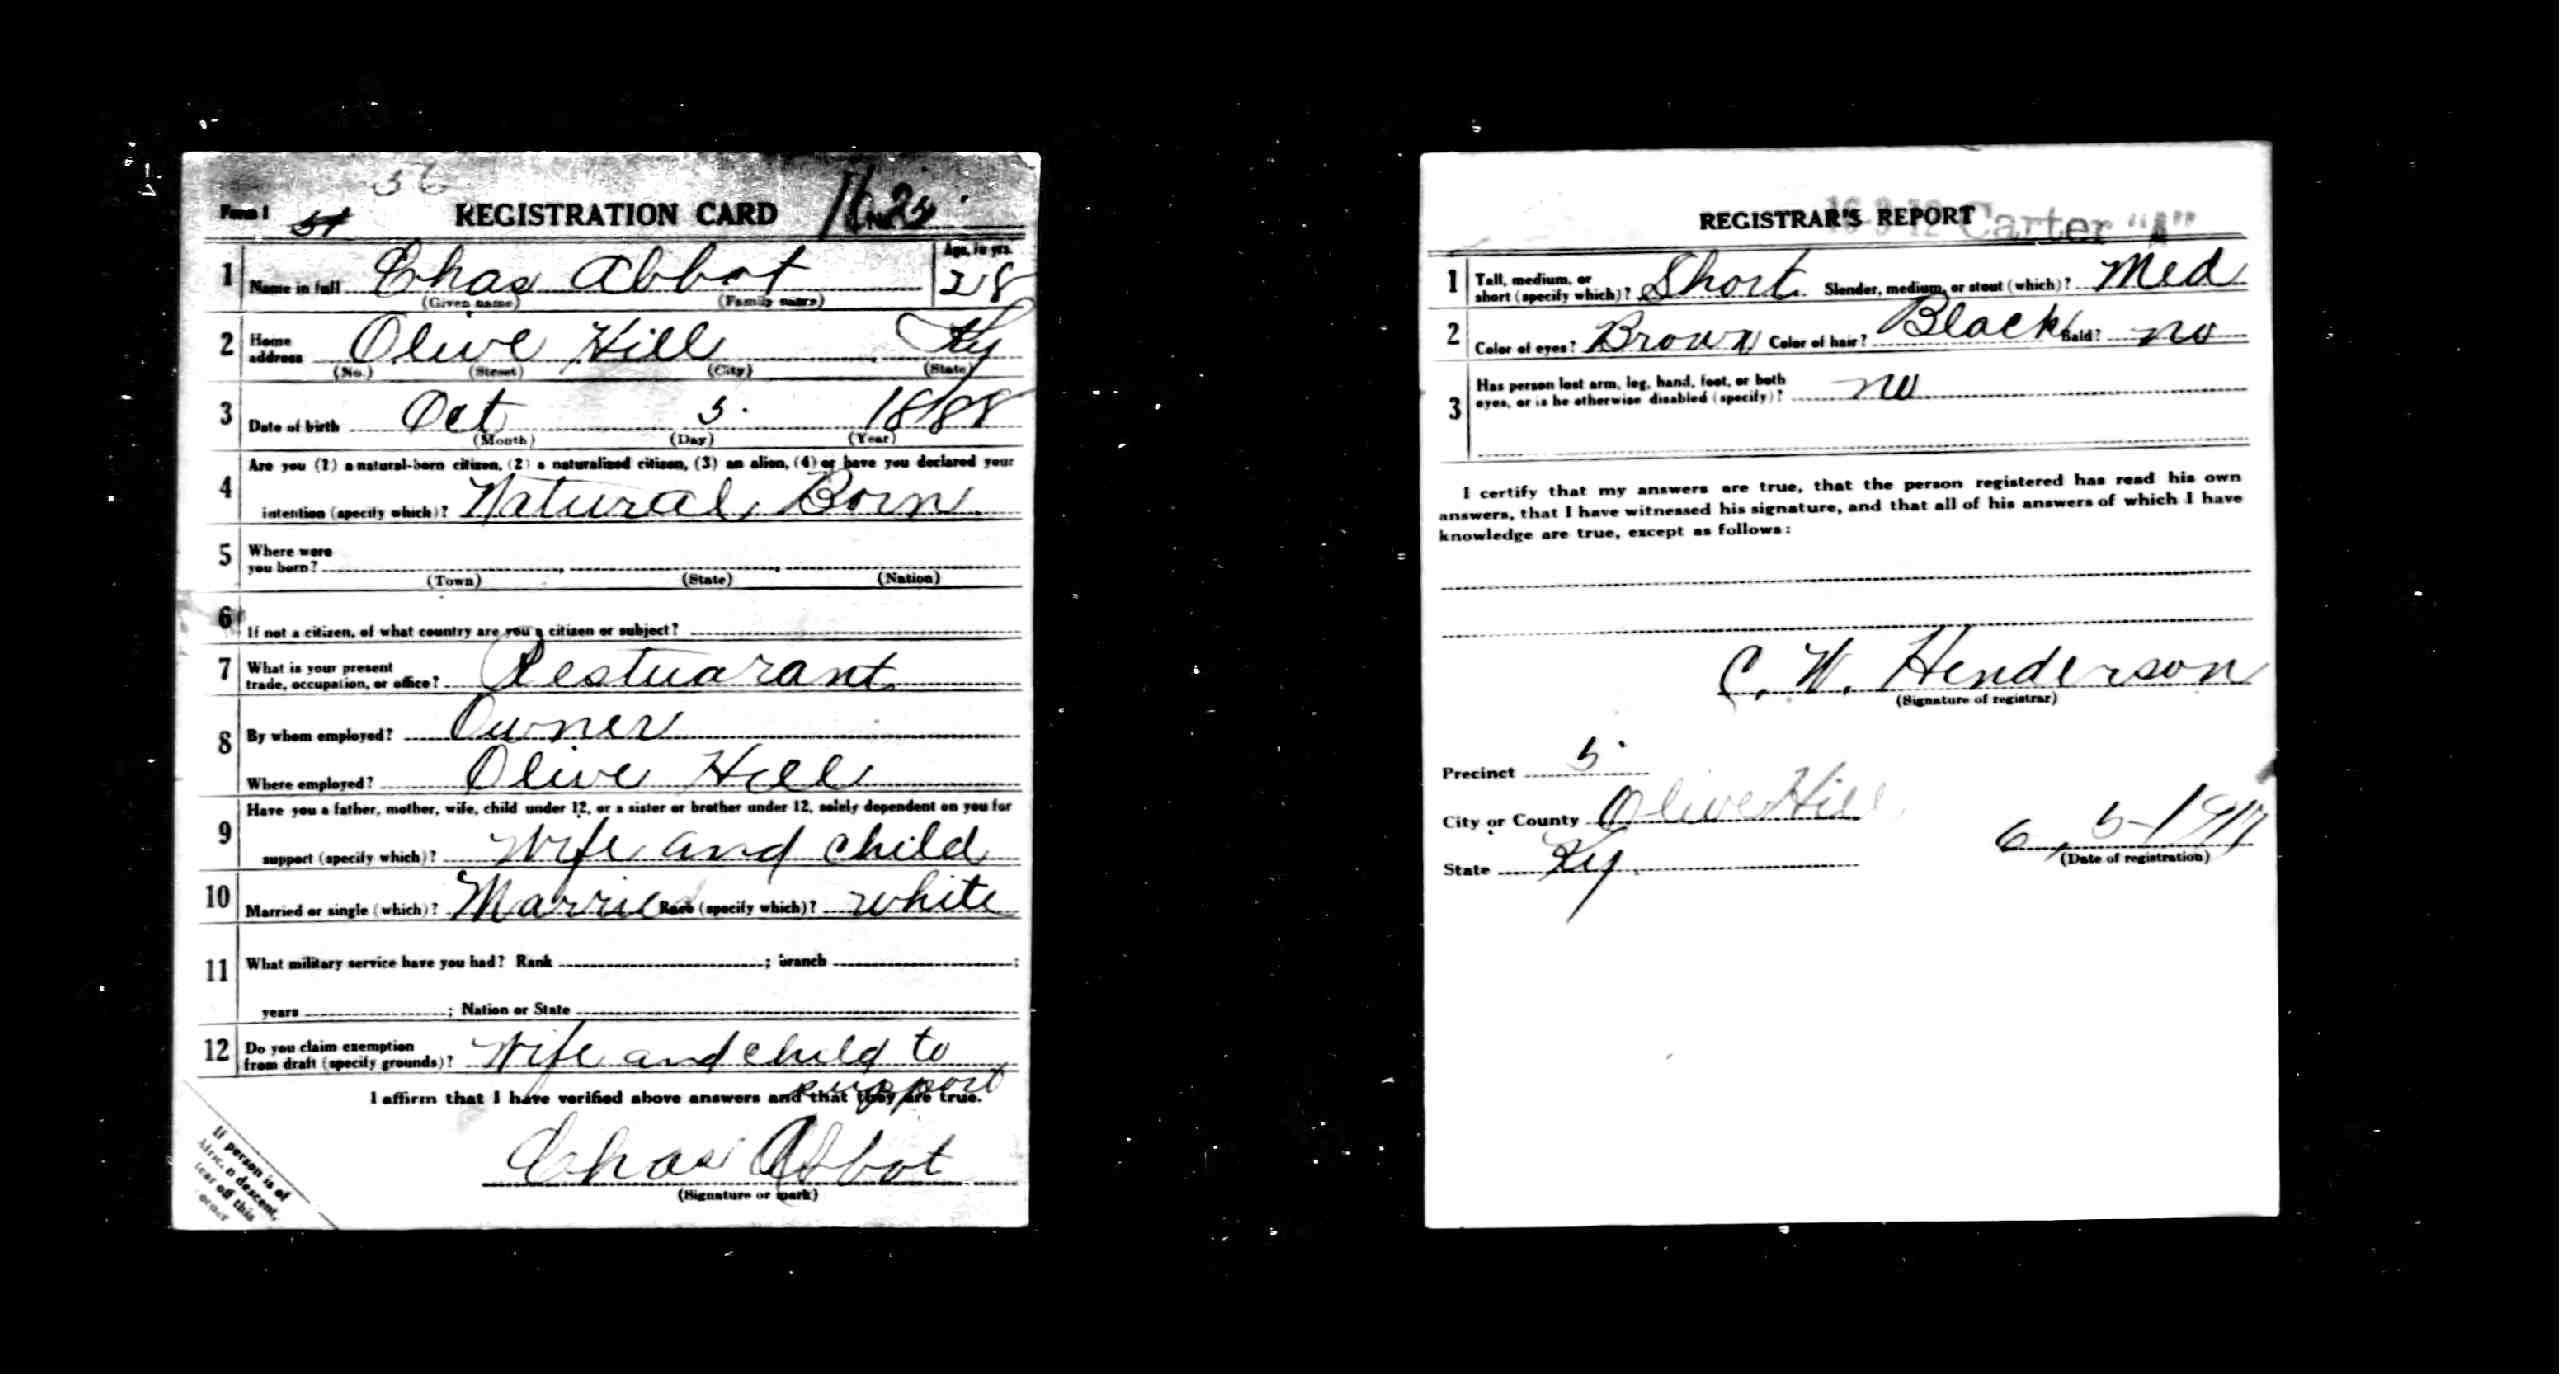 56
Form 1 51 REGISTRATION CARD No. 25
1 Name in full Chas Abbot Age, in yrs. 28
(Given name) (Family name)
2 Home address Olive Hill Ky
(No.) (Street) (City) (State)
3 Date of birth Oct 5. 1888
(Month) (Day) (Year)
4 Are you (1) a natural-born citizen, (2) a naturalized citizen, (3) an alien, (4) or have you declared your
intention (specify which)? Natural Born
5 Where were
you born?
(Town) (State) (Nation)
6 If not a citizen, of what country are you a citizen or subject?
7 What is your present
trade, occupation, or office? Restuarant
8 By whom employed? Owner
Where employed? Olive Hill
9 Have you a father, mother, wife, child under 12, or a sister or brother under 12, solely dependent on you for
support (specify which)? Wife and child
10 Married or single (which)? Married Race (specify which)? white
11 What military service have you had? Rank ; branch ;
years ; Nation or State
12 Do you claim exemption
from draft (specify grounds)? Wife and child to
support
I affirm that I have verified above answers and that they are true.
Chas Abbot
(Signature or mark)
If person is of
African descent,
tear off this
corner
REGISTRAR'S REPORT
Carter "A"
1 Tall, medium, or
short (specify which)? Short Slender, medium, or stout (which)? Med
2 Color of eyes? Brown Color of hair? Black Bald? no
3 Has person lost arm, leg, hand, foot, or both
eyes, or is he otherwise disabled (specify)? no
I certify that my answers are true, that the person registered has read his own
answers, that I have witnessed his signature, and that all of his answers of which I have
knowledge are true, except as follows:
C. W. Henderson
(Signature of registrar)
Precinct 5
City or County Olive Hill
State Ky
6, 5-1917
(Date of registration)